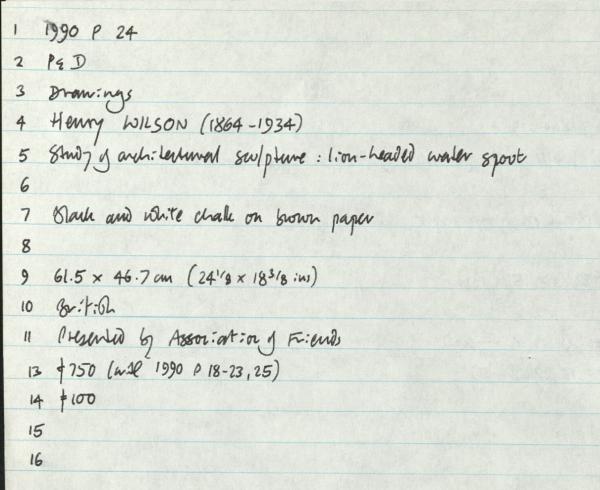 1 1990 P 24
2 P&D
3 Drawings
4 Henry WILSON (1864-1934)
5 Study of architectural sculpture : lion-headed water spout
6
7 Black and white chalk on brown paper
8
9 61.5 x 46.7 cm (24 1/8 x 18 3/8 ins)
10 British
11 Presented by Association of Friends
13 £750 (with 1990 P 18-23, 25)
14 £100
15
16